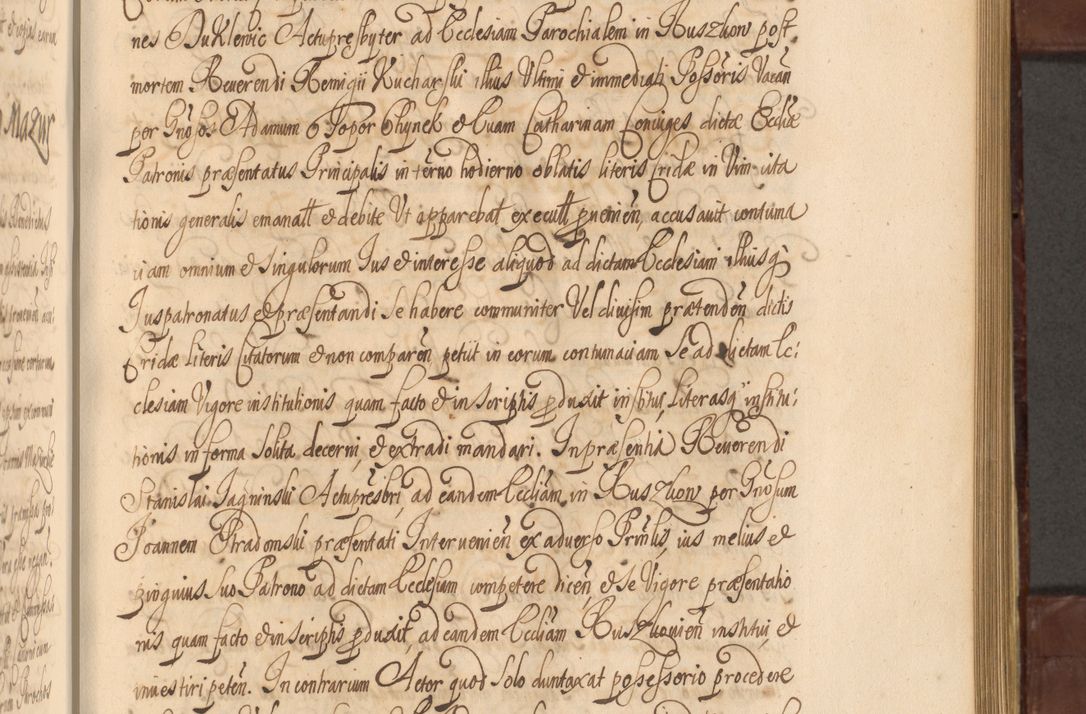 nes Duklewic Actupresbyter ad Ecclesiam Parochialem in Ruszkow post
mortem Reuerendi Remigii Kucharski illius Vltimi et immediati Possoris Vacan
per Gnosos Adamum Topor Chynek et Euam Catharinam Coniuges dictæ Eccliæ
Patronis præsentatus Principalis in terno hodierno oblatis literis Cridæ in Vim cita
tionis generalis emanatt et debite Ut apparebat executt pueniēn, accusauit contuma
ciam omnium et singulorum Jus et interesse aliquod ad dictam Ecclesiam illiusq
Juspatronatus et præsentandi se habere communiter Vel diuisim prætendēn dictis
Cridæ literis Citatorum et non comparēn petiit in eorum contumaciam se ad dictam Ec:
clesiam Vigore institutionis quam facto et in scriptis pduxit institui, Literasq institu:
tionis in forma solita decerni, et extradi mandari. In præsentia Reuerendi
Stanislai Jagninski Actupresbri, ad eandem Eccliam in Ruszkow per Gnosum
Joannem Stradomski præsentati Interueniēn ex aduerso Prinlis, ius melius et
pinguius suo Patrono ad dictam Ecclesiam competere dicēn, et se Vigore præsentatio
nis quam facto et in scriptis pduxit, ad eandem Eccliam Ruszkouiēn institui, et
inuestiri petēn. In contrarium Actor quod solo duntaxat possessorio procedere